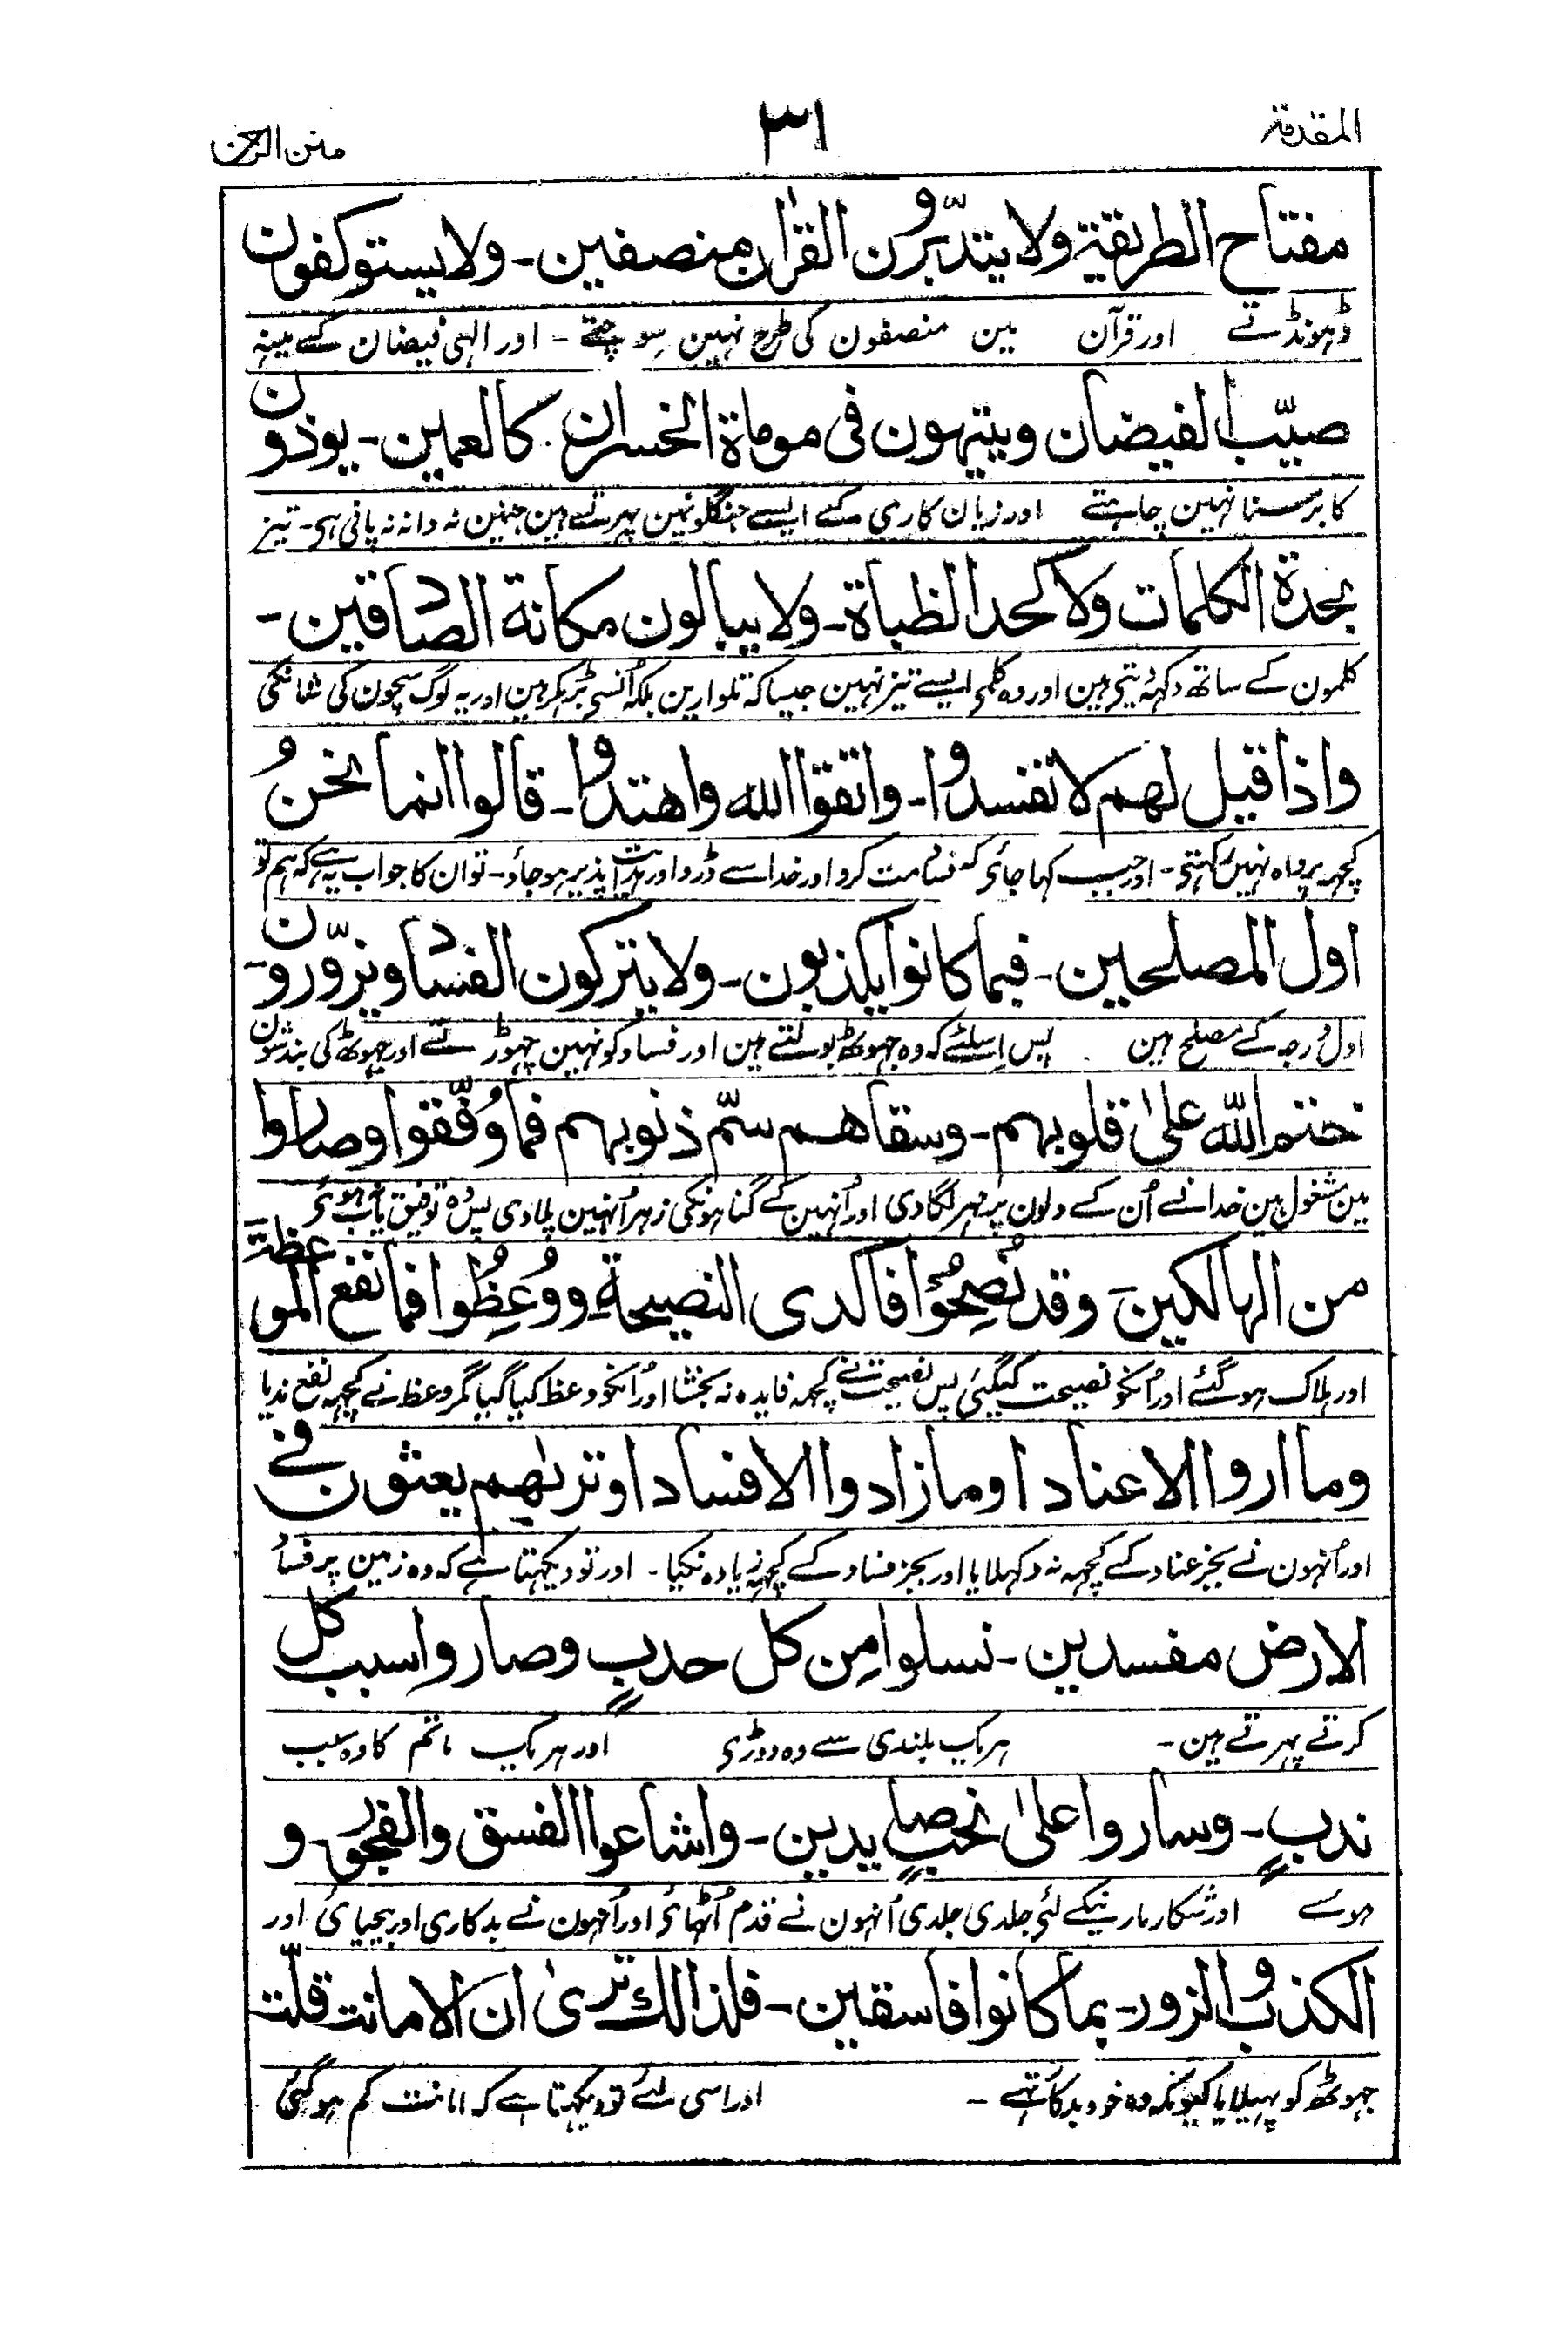 المقدمة ۳۱ منن الرحمن
مفتاح الطریقة ولا یتدبّرون القراٰن منصفین۔ ولا یستوکفون
ڈہونڈتے اور قرآن مین منصفون کی طرح نہین سوچتے ۔ اور الٰہی فیضان کے مینہ
صیّب الفیضان ویتیہون فی موماة الخسران کالعمین۔ یوذون
کا برسنا نہین چاہتے اور زیان کاری کے ایسے جنگلونمین پہرتے ہین جنہین نہ دانہ نہ پانی ہی۔ تیز
بحدة الکلمات ولا کحد الظباة۔ ولا یبالون مکانة الصادقین۔
کلمون کے ساتھ دکہہ دیتی ہین اور وہ کلمی ایسے تیز نہین جیسا کہ تلوارین بلکہ اُنسی بڑہکر ہین اور یہ لوگ سچون کی شانکی
واذا قیل لهم لا تفسدوا۔ واتقوا الله واهتدوا۔ قالوا انما نحنُ
کچہہ پرواہ نہین رکہتی۔ اور جب کہا جائی کہ فساد مت کرو اور خدا سے ڈرو اور ہدایت پذیر ہو جاو۔ تو ان کا جواب یہ ہے کہ ہم تو
اول المصلحین۔ فیما کانوا یکذبون۔ ولا یترکون الفساد ویزوّرون۔
اول درجہ کے مصلح ہین پس اسلئے کہ وہ جہوٹھ بولتے ہین اور فساد کو نہین چہوڑتے اور جہوٹھ کی بندشون
ختم اللّٰه علیٰ قلوبهم۔ وسقاهم سمّ ذنوبهم فما وُفّقوا وصاروا
مین مشغول ہین خدا نے اُن کے دلون پر مہر لگا دی اور اُنہین کے گناہونکی زہر اُنہین پلا دی پس وہ توفیق یاب نہ ہوئے
من الهالکین۔ وقد نُصِحُوا فاکدی النصیحة ووُعِظُوا فما نفع الموعظة
اور ہلاک ہوگئے اور اُنکو نصیحت کیگئی پس نصیحت نے کچہہ فایدہ نہ بخشا اور اُنکو وعظ کیا گیا مگر وعظ نے کچہہ نفع ندیا
وما اروا الا عنادا وما زادوا الا فسادا وترٰىهم یعثون فے
اور اُنہون نے بجز عناد کے کچہہ نہ دکہلایا اور بجز فساد کے کچہہ زیادہ نکیا۔ اور تو دیکہتا ہے کہ وہ زمین پر فساد
الارض مفسدین۔ نسلوا مِن کل حدبٍ وصاروا سبب کل
کرتے پہرتے ہین۔ ہریک بلندی سے وہ دوڑی اور ہر یک ماتم کا وہ سبب
ندبٍ۔ وساروا علیٰ نحبٍ صایدین۔ واشاعوا الفسق والفجور و
ہوئے اور شکار مارنیکے لئی جلدی جلدی اُنہون نے قدم اُٹہائی اور اُنہون نے بدکاری اور بیحیائی اور
الکذب والزور۔ بما کانوا فاسقین۔ فلذالك تریٰ ان الامانت قلّت
جہوٹھ کو پہیلایا کیونکہ وہ خود بدکار تہے ۔ اور اسی لئے تو دیکہتا ہے کہ امانت کم ہوگئی